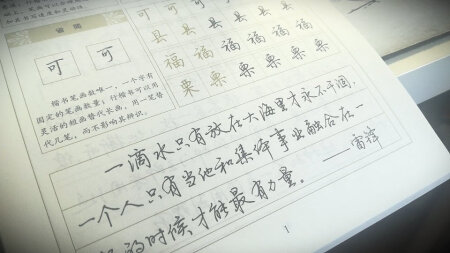 可 可 可 可 可
省简
县 县 县 县 县 县
可 可
福 福 福 福 福 福
栗 栗 栗 栗 栗 栗
楷书笔画数唯一，一个字有
固定的笔画数量；行楷书可以用
灵活的短画替代长画，用一笔替
代几笔，而不影响其辨识。
一滴水只有放在大海里才永不干涸，
一个人只有当他和集体事业融合在一
的时候才能最有力量。——雷锋
1